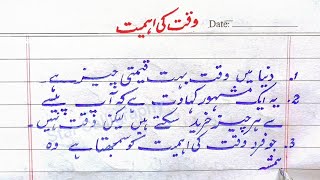 وقت کی اہمیت
Date:
1. دنیا میں وقت بہت قیمتی چیز ہے۔
2. یہ ایک مشہور کہاوت ہے کہ آپ پیسے
سے ہر چیز خرید سکتے ہیں لیکن وقت نہیں۔
3 جو فرد وقت کی اہمیت کو سمجھتا ہے وہ
ہمیشہ